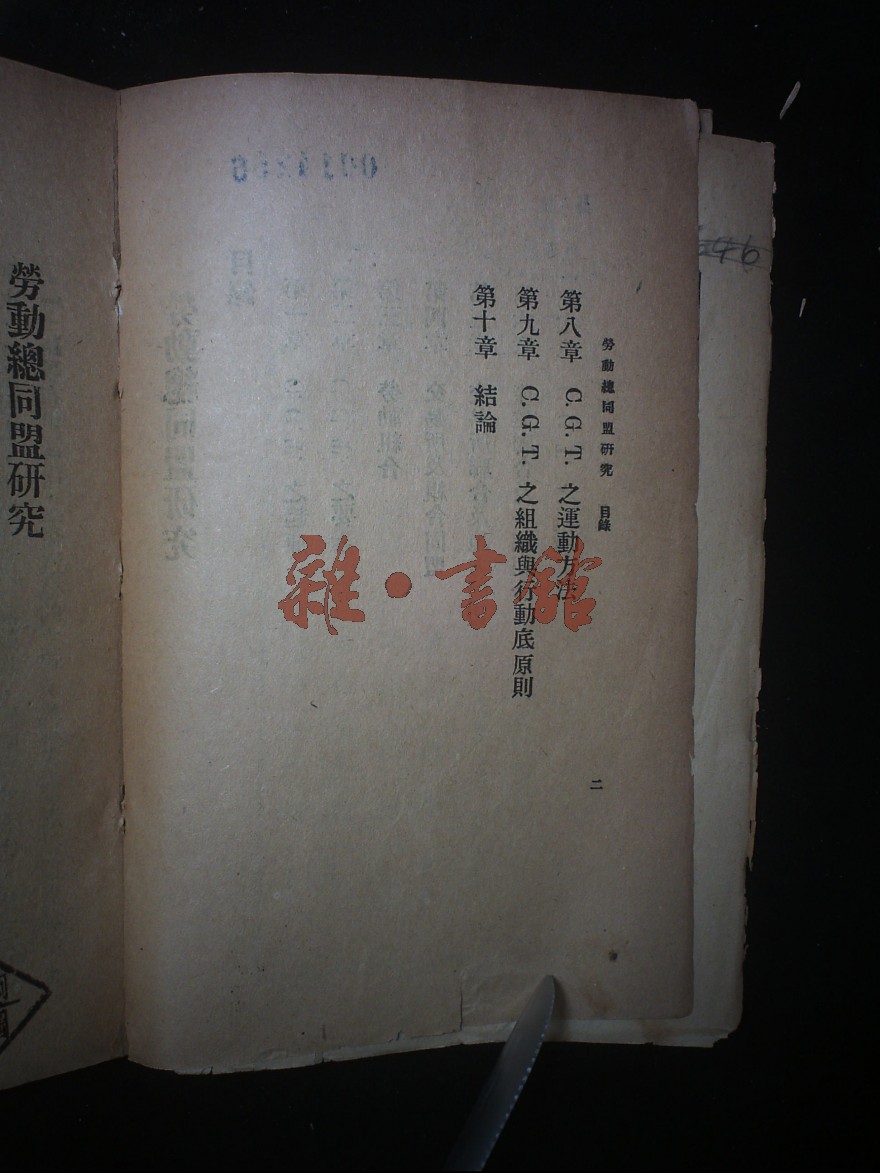 勞動總同盟研究 目錄
第八章 C.G.T. 之運動方法
第九章 C.G.T. 之組織與行動底原則
第十章 結論
二
勞動總同盟研究
雜·書館